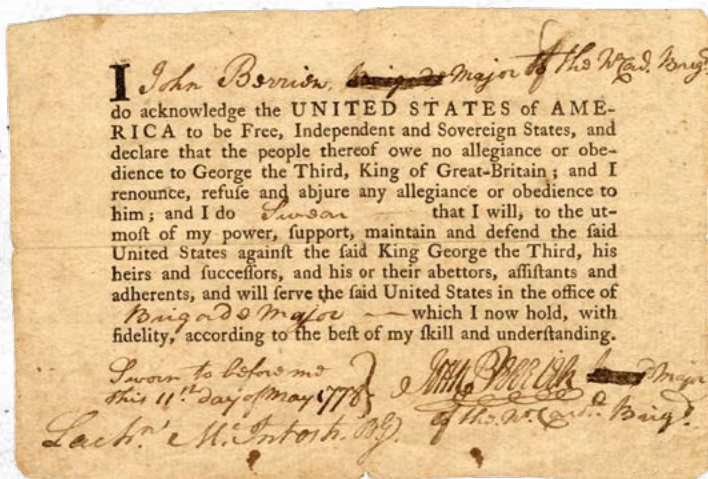 I John Berrien, Brigade Major of the No. Cad. Brigd.
do acknowledge the UNITED STATES of AME-
RICA to be Free, Independent and Sovereign States, and
declare that the people thereof owe no allegiance or obe-
dience to George the Third, King of Great-Britain; and I
renounce, refuse and abjure any allegiance or obedience to
him; and I do Swear that I will, to the ut-
moſt of my power, ſupport, maintain and defend the ſaid
United States againſt the ſaid King George the Third, his
heirs and ſucceſſors, and his or their abettors, aſſiſtants and
adherents, and will ſerve the ſaid United States in the office of
Brigade Major which I now hold, with
fidelity, according to the beſt of my ſkill and underſtanding.
Sworn to before me
this 11th day of May 1778
John Berrien Major
of the No. Brigd.
Lachn. McIntosh. B.G.